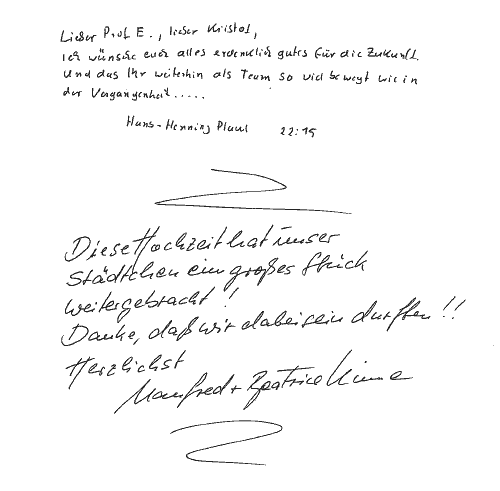 Lieber Prof E., lieber Kristof,
ich wünsche euch alles erdenklich gutes für die Zukunft.
Und das Ihr weiterhin als Team so viel bewegt wie in
der Vergangenheit.....
Hans-Henning Plaul 22:15
Diese Hochzeit hat unser
Städtchen ein großes Stück
weitergebracht!
Danke, daß wir dabeisein durften!!
Herzlichst
Manfred + Beatrice